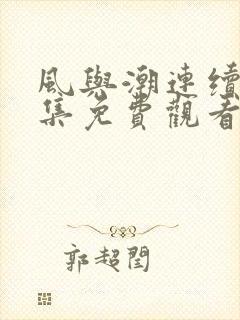 風與潮連續
集免費觀看
郭超閏